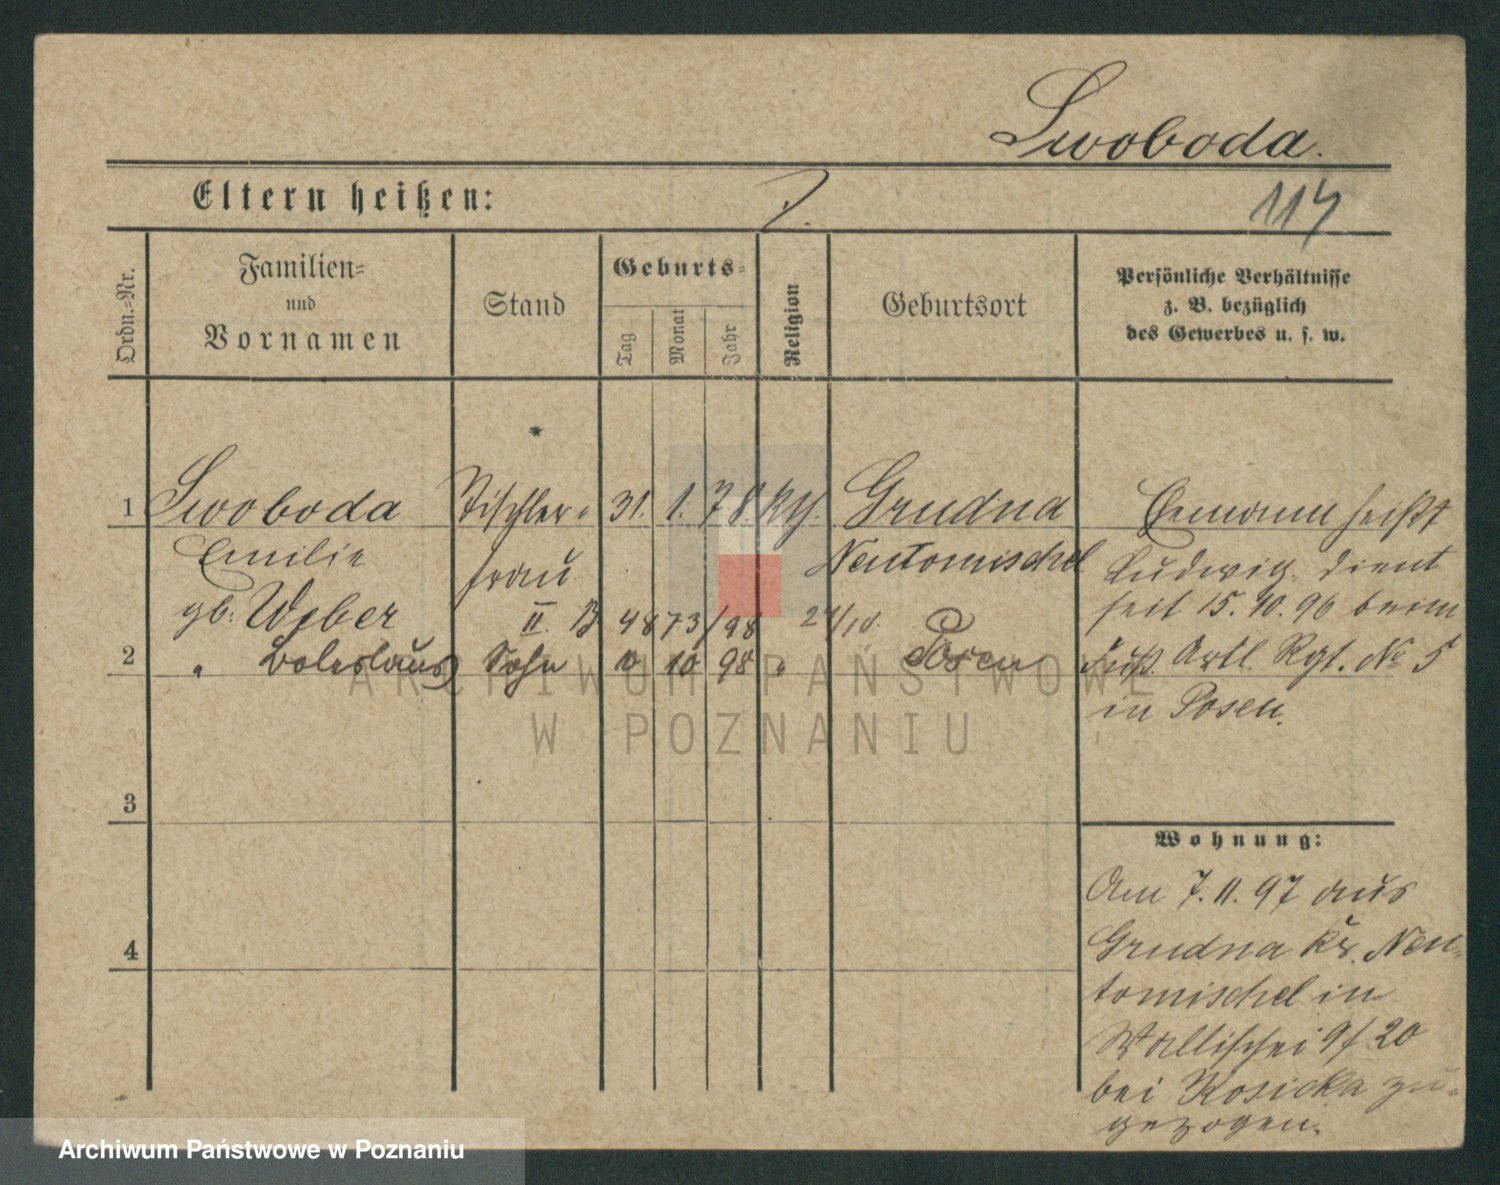 Swoboda.
Eltern heißen:
114
Ordn.-Nr.
Familien-
und
Vornamen
Stand
Geburts-
Tag
Monat
Jahr
Religion
Geburtsort
Persönliche Verhältnisse
z. B. bezüglich
des Gewerbes u. s. w.
1 Swoboda Tischler- 31. 1. 78. kth. Grudna
Emilie frau Neutomischel
gb: Weber II. B 4873/98 24/10.
2 " Boleslaus Sohn 10 98 " Posen
3
4
Ehemann heißt
Ludwig, dient
seit 15.10.96 beim
Fuß. Artl. Rgt. No 5
in Posen.
Wohnung:
Am 7.11.97 aus
Grudna Kr. Neu-
tomischel in
Wallischei 9/20
bei Kosicka zu-
gezogen.
ARCHIWUM PAŃSTWOWE
W POZNANIU
Archiwum Państwowe w Poznaniu